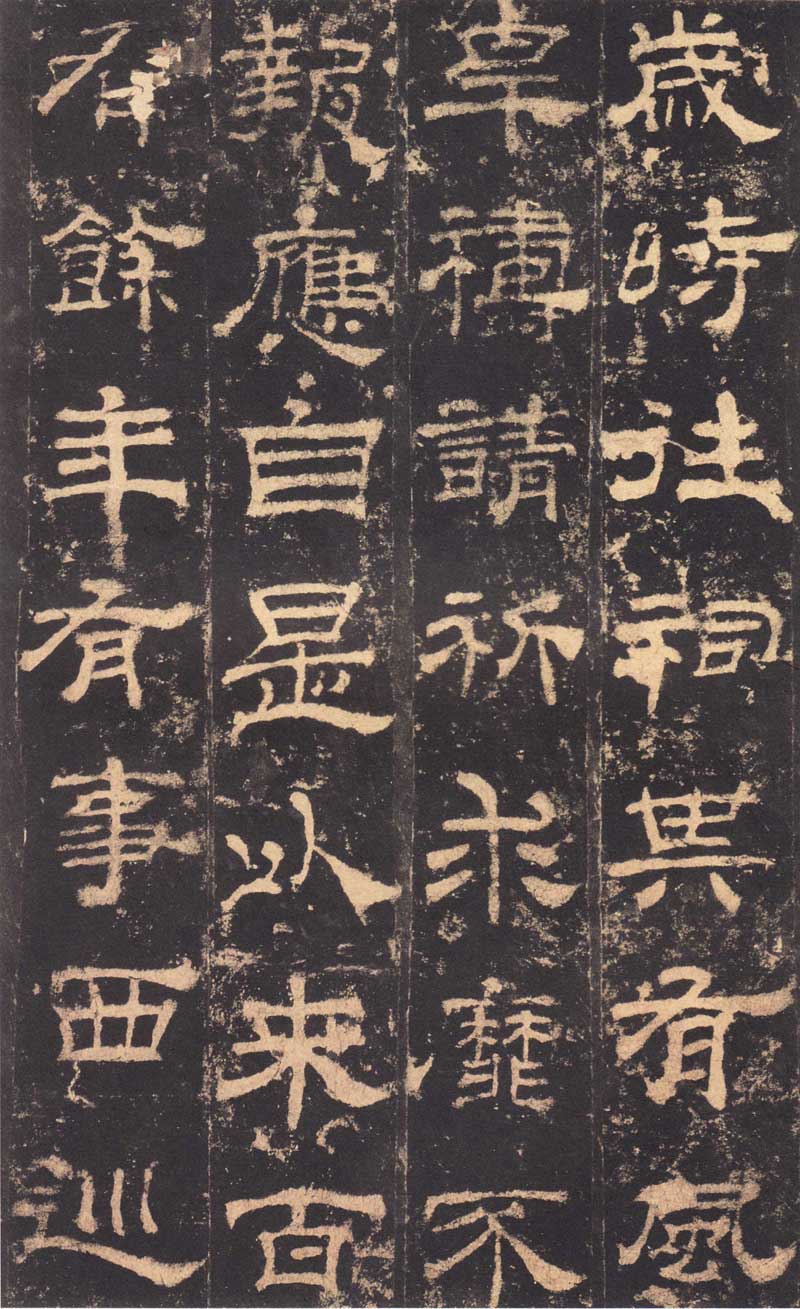 歲時往祠其有風
旱禱請祈求靡不
報應自是以来百
有餘年有事西巡